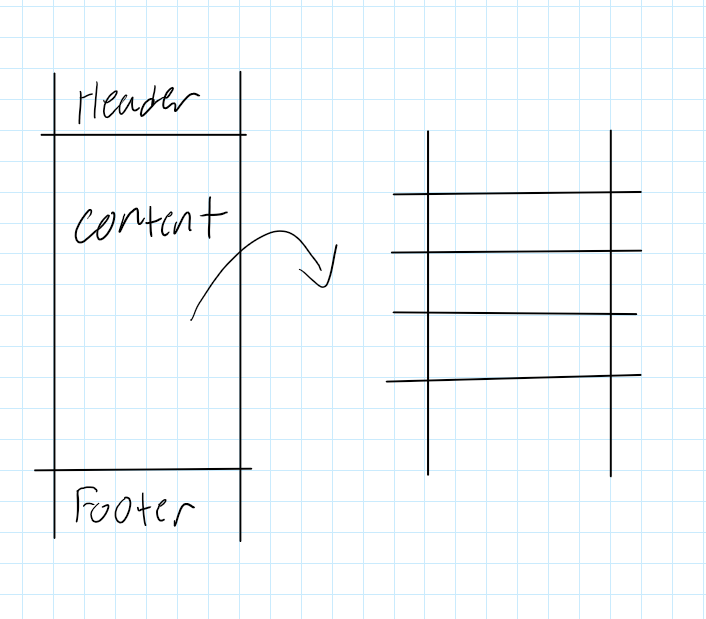 Header
content
Footer